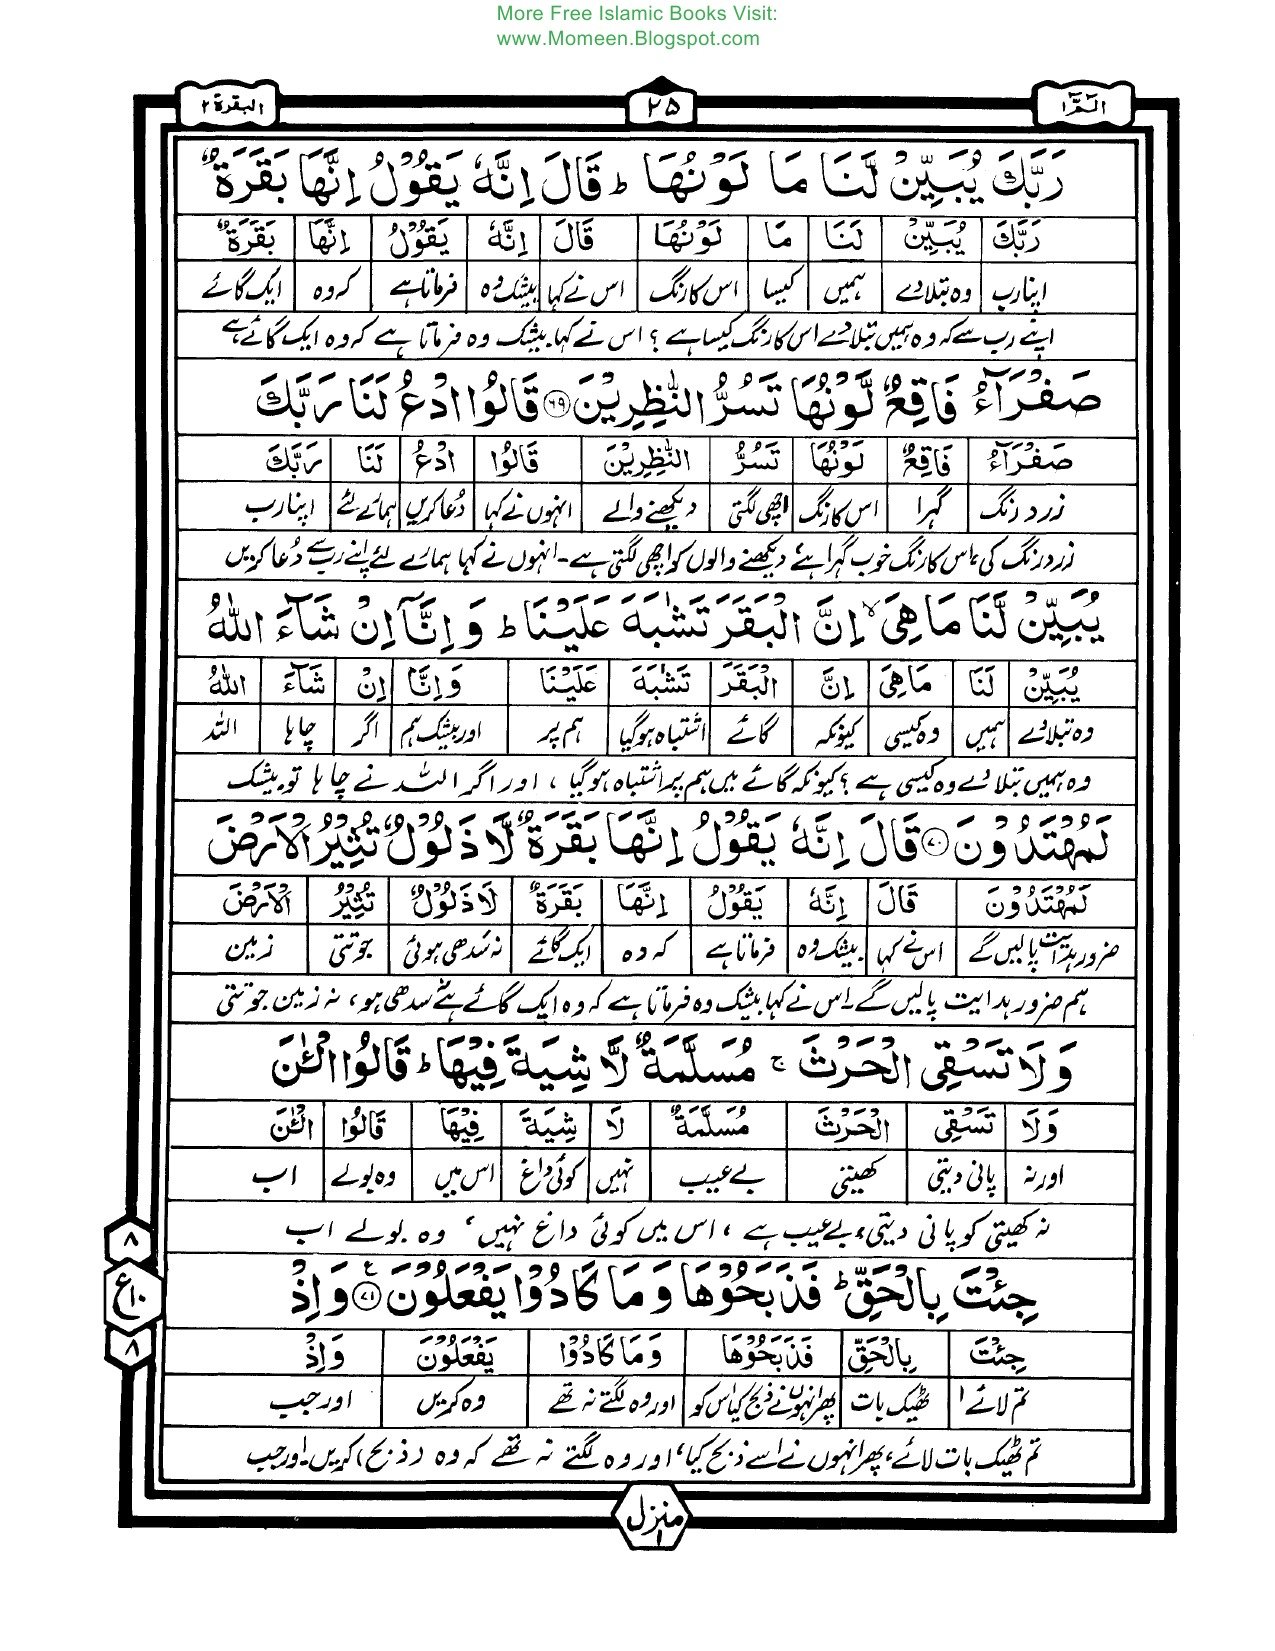 More Free Islamic Books Visit:
www.Momeen.Blogspot.com
الٓمّٓ ۱ ۲۵ البقرة ۲
رَبَّكَ يُبَيِّنْ لَّنَا مَا لَوْنُهَا ؕ قَالَ اِنَّهٗ يَقُوْلُ اِنَّهَا بَقَرَةٌ
رَبَّكَ يُبَيِّنْ لَنَا مَا لَوْنُهَا قَالَ اِنَّهٗ يَقُوْلُ اِنَّهَا بَقَرَةٌ
اپنا رب وہ بتلادے ہمیں کیسا اس کا رنگ اس نے کہا بیشک وہ فرماتا ہے کہ وہ ایک گائے
اپنے رب سے کہ وہ ہمیں بتلادے اس کا رنگ کیسا ہے ؟ اس نے کہا بیشک وہ فرماتا ہے کہ وہ ایک گائے ہے
صَفْرَآءُ فَاقِعٌ لَّوْنُهَا تَسُرُّ النّٰظِرِيْنَ ۶۹ قَالُوا ادْعُ لَنَا رَبَّكَ
صَفْرَآءُ فَاقِعٌ لَوْنُهَا تَسُرُّ النّٰظِرِيْنَ قَالُوا ادْعُ لَنَا رَبَّكَ
زرد رنگ گہرا اس کا رنگ اچھی لگتی دیکھنے والے انہوں نے کہا دُعا کریں ہمارے لئے اپنا رب
زرد رنگ کی، اس کا رنگ خوب گہرا ہے، دیکھنے والوں کو اچھی لگتی ہے۔ انہوں نے کہا ہمارے لئے اپنے رب سے دُعا کریں
يُبَيِّنْ لَّنَا مَا هِىَ ۙ اِنَّ الْبَقَرَ تَشٰبَهَ عَلَيْنَا ؕ وَاِنَّآ اِنْ شَآءَ اللّٰهُ
يُبَيِّنْ لَنَا مَا هِىَ اِنَّ الْبَقَرَ تَشٰبَهَ عَلَيْنَا وَاِنَّا اِنْ شَآءَ اللّٰهُ
وہ بتلادے ہمیں وہ کیسی کیونکہ گائے اشتباہ ہوگیا ہم پر اور بیشک ہم اگر چاہا اللہ
وہ ہمیں بتلا دے وہ کیسی ہے ؟ کیونکہ گائے میں ہم پر اشتباہ ہوگیا ، اور اگر اللہ نے چاہا تو بیشک
لَمُهْتَدُوْنَ ۷۰ قَالَ اِنَّهٗ يَقُوْلُ اِنَّهَا بَقَرَةٌ لَّا ذَلُوْلٌ تُثِيْرُ الْاَرْضَ
لَمُهْتَدُوْنَ قَالَ اِنَّهٗ يَقُوْلُ اِنَّهَا بَقَرَةٌ لَا ذَلُوْلٌ تُثِيْرُ الْاَرْضَ
ضرور ہدایت پالیں گے اس نے کہا بیشک وہ فرماتا ہے کہ وہ ایک گائے نہ سدھی ہوئی جوتتی زمین
ہم ضرور ہدایت پالیں گے۔ اس نے کہا بیشک وہ فرماتا ہے کہ وہ ایک گائے ہے نہ سدھی ہو ، نہ زمین جوتتی
وَلَا تَسْقِى الْحَرْثَ ۚ مُسَلَّمَةٌ لَّا شِيَةَ فِيْهَا ؕ قَالُوا الْـٰٔنَ
وَلَا تَسْقِى الْحَرْثَ مُسَلَّمَةٌ لَا شِيَةَ فِيْهَا قَالُوا الْـٰٔنَ
اور نہ پانی دیتی کھیتی بے عیب نہیں کوئی داغ اس میں وہ بولے اب
نہ کھیتی کو پانی دیتی، بے عیب ہے ، اس میں کوئی داغ نہیں، وہ بولے اب
جِئْتَ بِالْحَقِّ ؕ فَذَبَحُوْهَا وَمَا كَادُوْا يَفْعَلُوْنَ ۷۱ ع وَاِذْ
۸
ع ۱۰
۸
جِئْتَ بِالْحَقِّ فَذَبَحُوْهَا وَمَا كَادُوْا يَفْعَلُوْنَ وَاِذْ
تم لائے ٹھیک بات پھر انہوں نے ذبح کیا اس کو اور وہ لگتے نہ تھے وہ کریں اور جب
تم ٹھیک بات لائے، پھر انہوں نے اسے ذبح کیا، اور وہ لگتے نہ تھے کہ وہ (ذبح) کریں۔ اور جب
منزل ۱